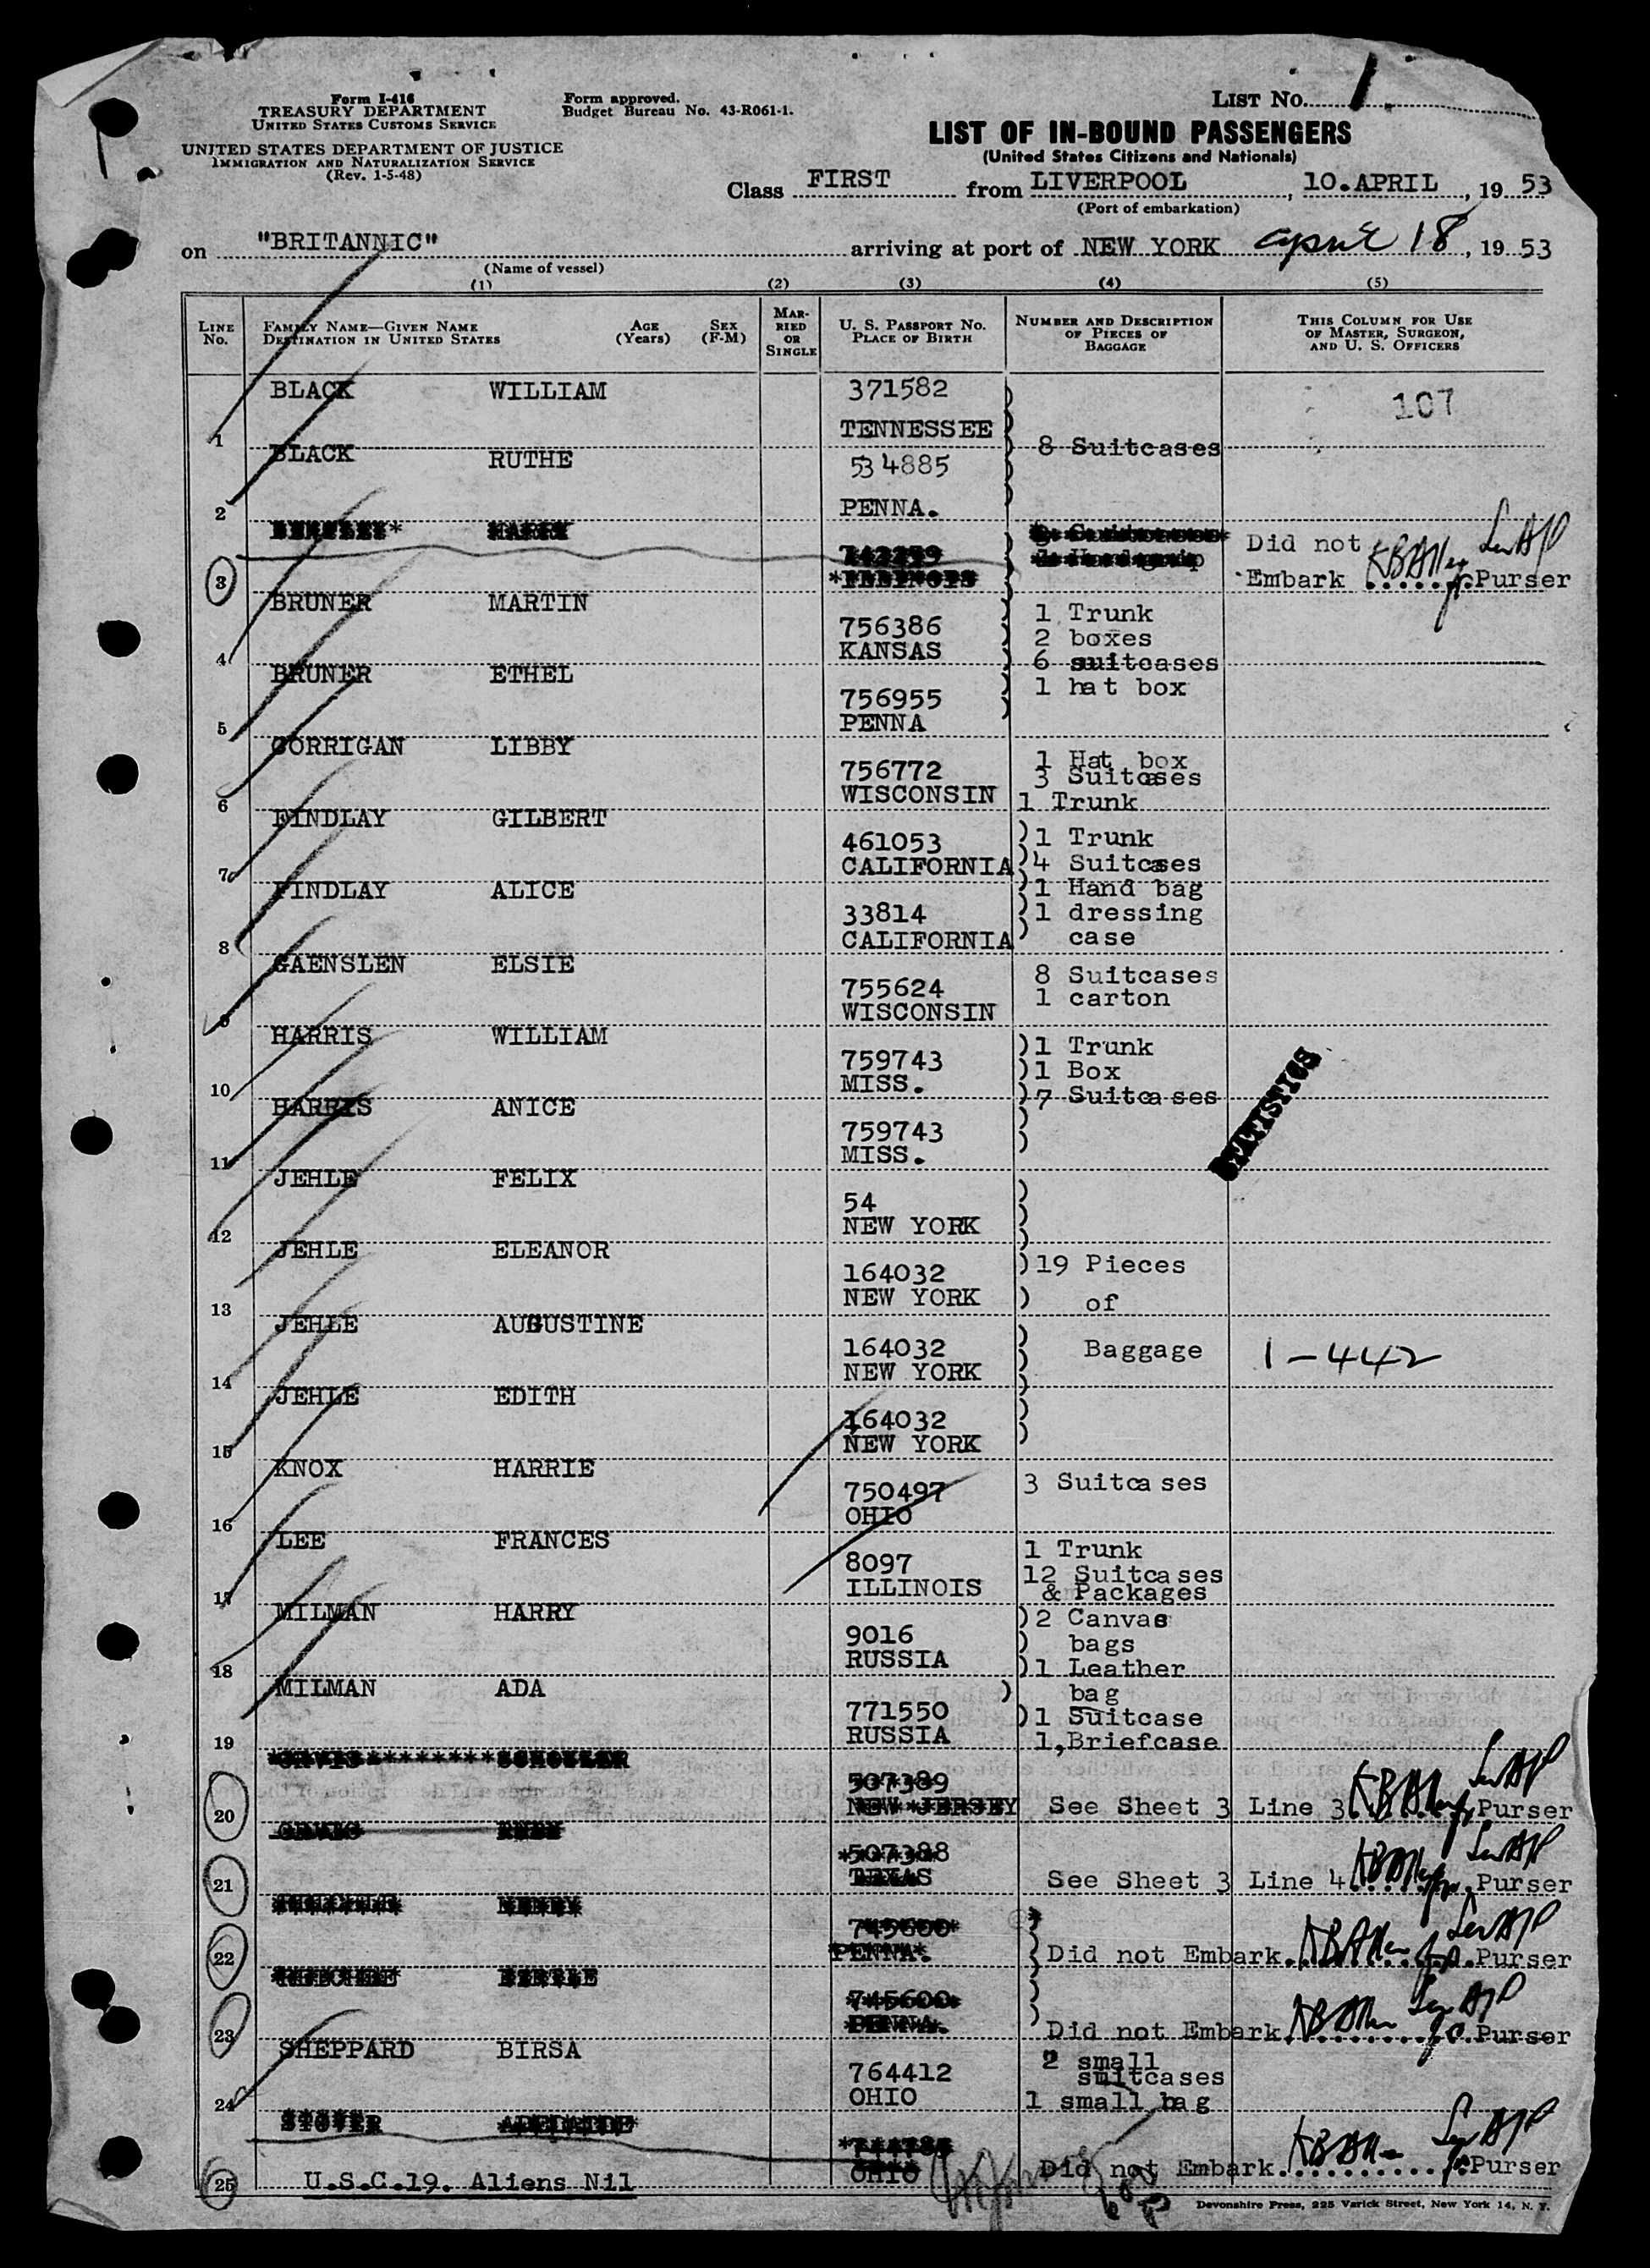 Form I-416
TREASURY DEPARTMENT
UNITED STATES CUSTOMS SERVICE
UNITED STATES DEPARTMENT OF JUSTICE
IMMIGRATION AND NATURALIZATION SERVICE
(Rev. 1-5-48)
Form approved.
Budget Bureau No. 43-R061-1.
LIST No. 1.
LIST OF IN-BOUND PASSENGERS
(United States Citizens and Nationals)
Class FIRST from LIVERPOOL, 10.APRIL, 19 53
(Port of embarkation)
on "BRITANNIC" arriving at port of NEW YORK April 18, 19 53
(Name of vessel)
(1) (2) (3) (4) (5)
LINE No.
FAMILY NAME—GIVEN NAME
DESTINATION IN UNITED STATES
AGE (Years)
SEX (F-M)
MARRIED OR SINGLE
U. S. PASSPORT No.
PLACE OF BIRTH
NUMBER AND DESCRIPTION OF PIECES OF BAGGAGE
THIS COLUMN FOR USE OF MASTER, SURGEON, AND U. S. OFFICERS
107
1 BLACK WILLIAM 371582 TENNESSEE
8 Suitcases
2 BLACK RUTHE 534885 PENNA.
3 HARRY 742279 *ILLINOIS Did not
Embark Purser
4 BRUNER MARTIN 756386 KANSAS
1 Trunk
2 boxes
6 suitcases
1 hat box
5 BRUNER ETHEL 756955 PENNA
6 CORRIGAN LIBBY 756772 WISCONSIN
1 Hat box
3 Suitcases
1 Trunk
7 FINDLAY GILBERT 461053 CALIFORNIA
1 Trunk
4 Suitcases
1 Hand bag
1 dressing
case
8 FINDLAY ALICE 33814 CALIFORNIA
9 GAENSLEN ELSIE 755624 WISCONSIN
8 Suitcases
1 carton
10 HARRIS WILLIAM 759743 MISS.
1 Trunk
1 Box
7 Suitcases
STATISTICS
11 HARRIS ANICE 759743 MISS.
12 JEHLE FELIX 54 NEW YORK
13 JEHLE ELEANOR 164032 NEW YORK
19 Pieces
of
Baggage
1-442
14 JEHLE AUGUSTINE 164032 NEW YORK
15 JEHLE EDITH 164032 NEW YORK
16 KNOX HARRIE 750497 OHIO
3 Suitcases
17 LEE FRANCES 8097 ILLINOIS
1 Trunk
12 Suitcases
& Packages
18 MILMAN HARRY 9016 RUSSIA
2 Canvas
bags
1 Leather
bag
1 Suitcase
1,Briefcase
19 MILMAN ADA 771550 RUSSIA
20 507389 NEW JERSEY See Sheet 3 Line 3 Purser
21 507388 TEXAS See Sheet 3 Line 4 Purser
22 HENRY 745600 PENNA. Did not Embark Purser
23 745600 PENNA. Did not Embark Purser
24 SHEPPARD BIRSA 764412 OHIO
2 small
suitcases
1 small bag
25 STOVER ADELAIDE OHIO Did not Embark Purser
U.S.C.19. Aliens Nil
Devonshire Press, 225 Varick Street, New York 14, N. Y.